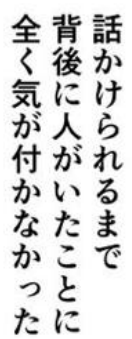 話かけられるまで
背後に人がいたことに
全く気が付かなかった